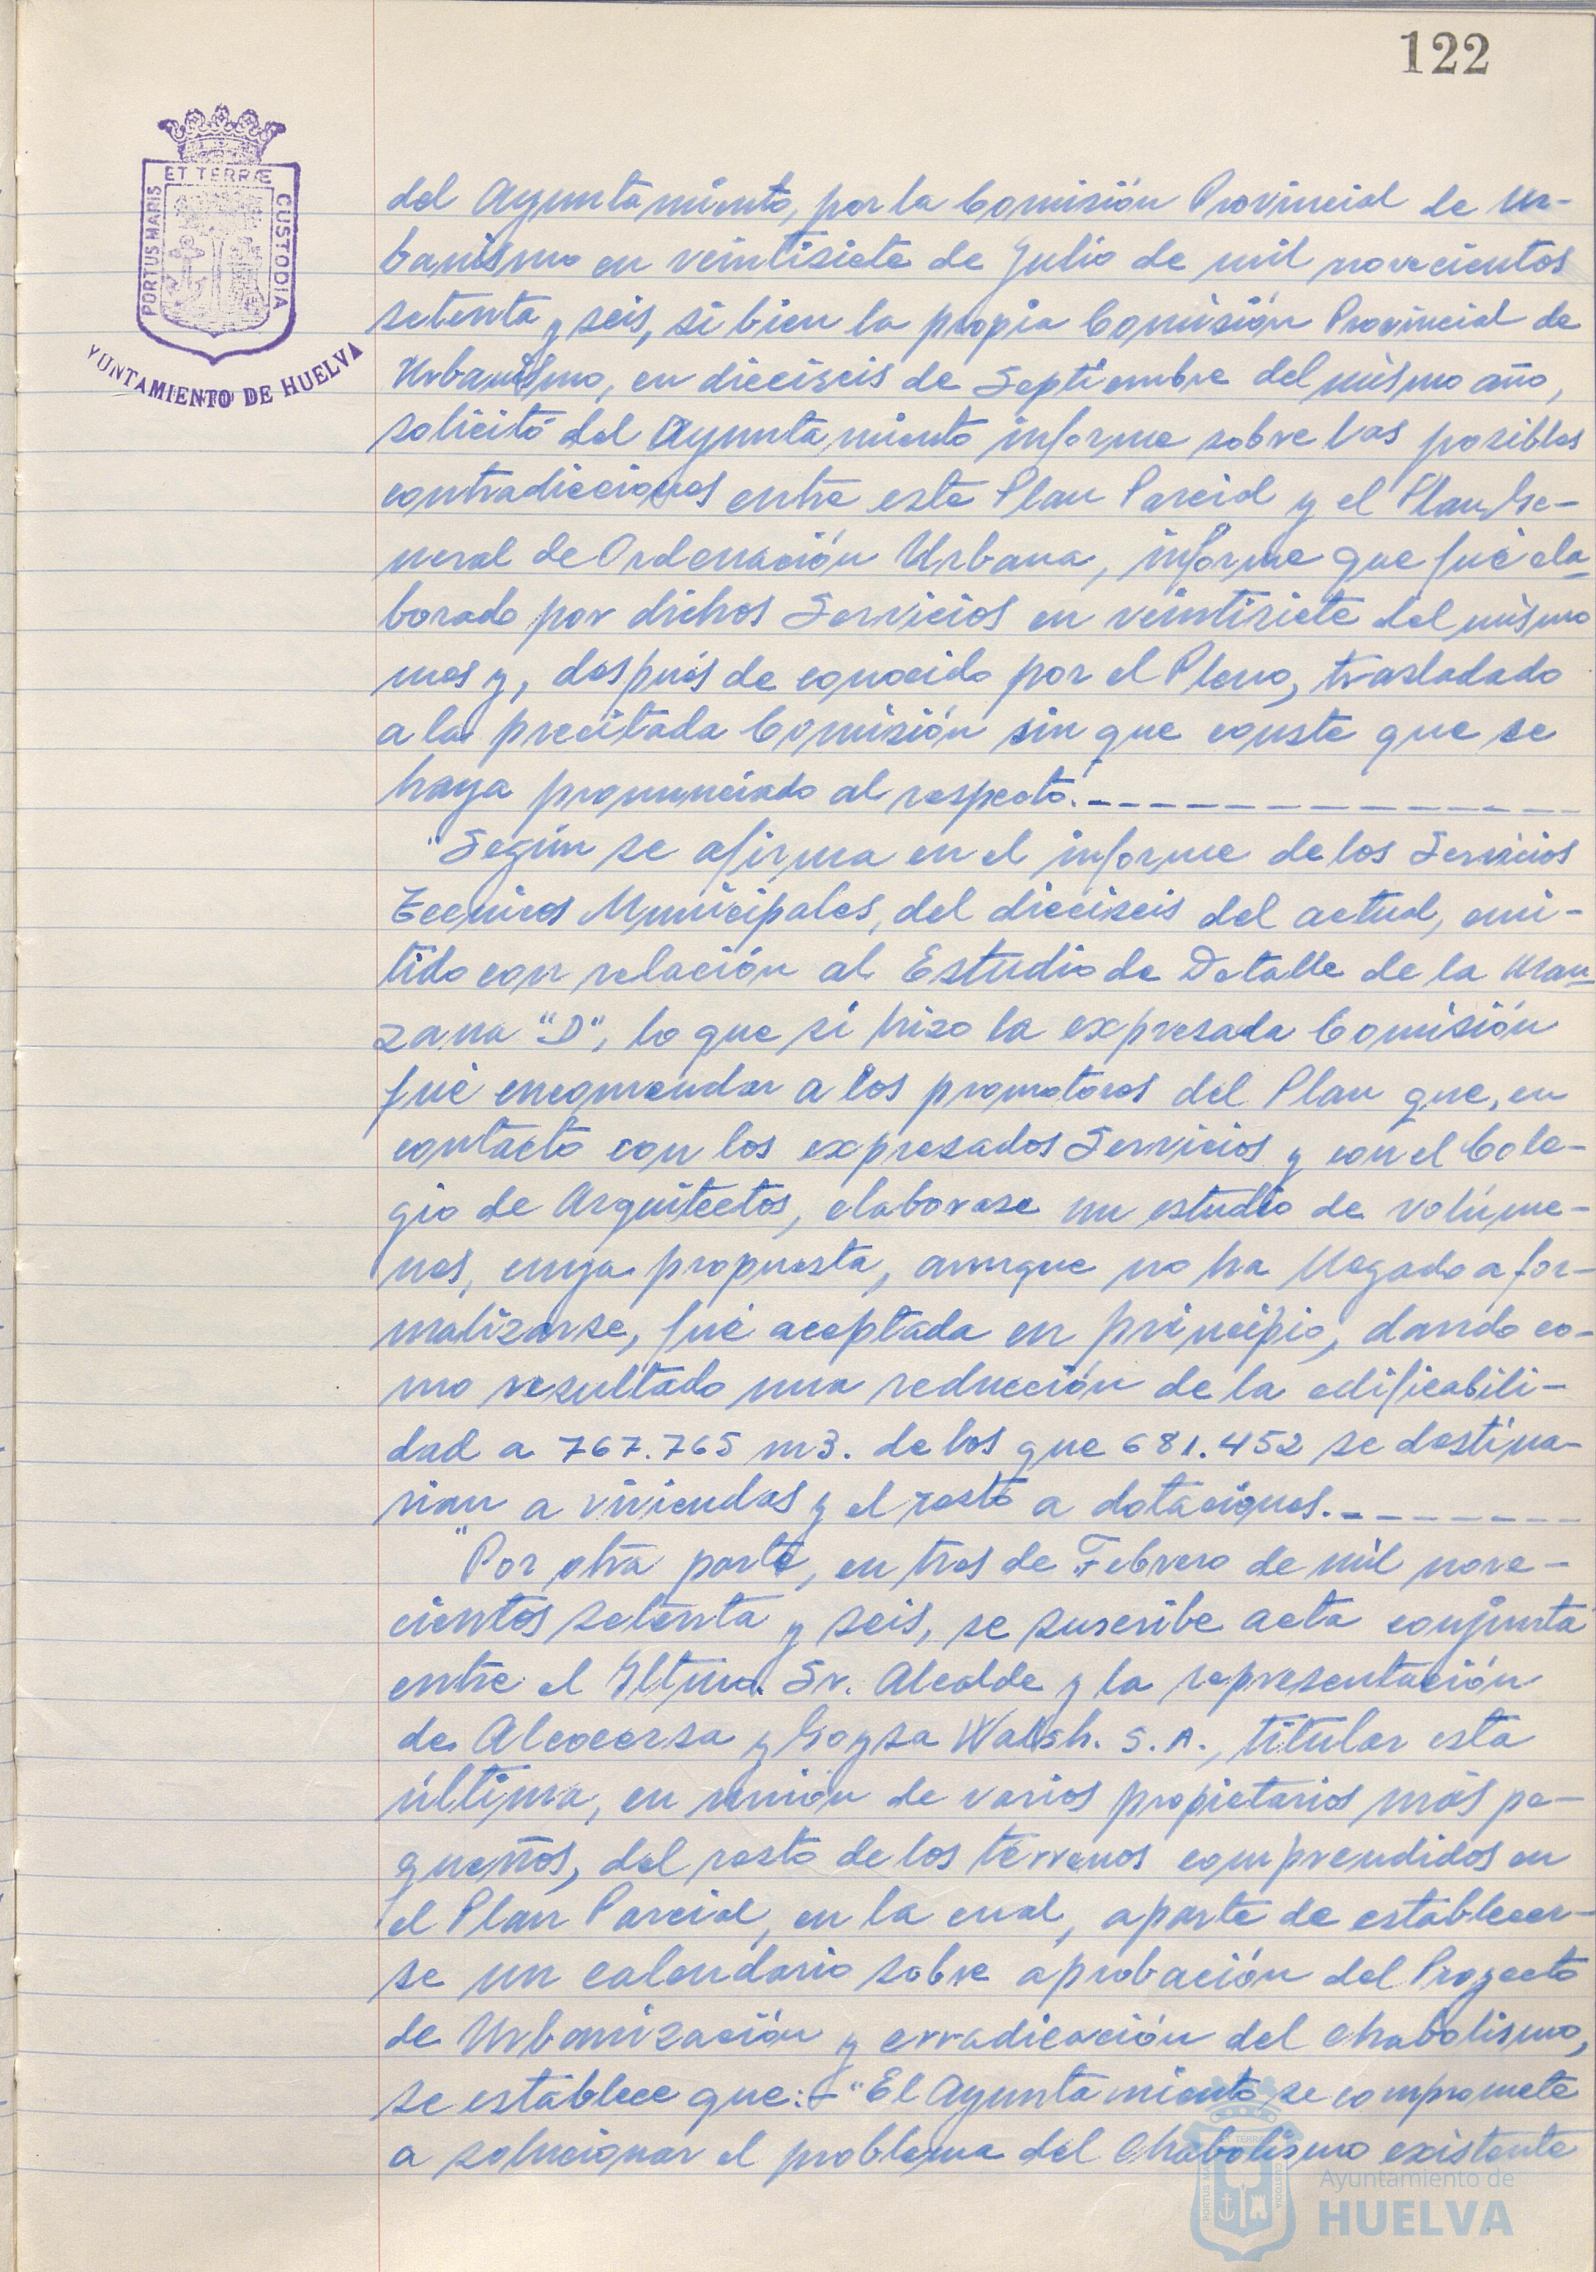 122
ET TERRÆ
PORTUS MARIS
CUSTODIA
YUNTAMIENTO DE HUELVA
del Ayuntamiento, por la Comisión Provincial de Ur-
banismo en veintisiete de Julio de mil novecientos
setenta y seis, si bien la propia Comisión Provincial de
Urbanismo, en dieciseis de Septiembre del mismo año,
solicitó del Ayuntamiento informe sobre las posibles
contradicciones entre este Plan Parcial y el Plan Ge-
neral de Ordenación Urbana, informe que fué ela-
borado por dichos Servicios en veintisiete del mismo
mes y, después de conocido por el Pleno, trasladado
a la precitada Comisión sin que conste que se
haya pronunciado al respecto.-
"Según se afirma en el informe de los Servicios
Tecnicos Municipales, del dieciseis del actual, emi-
tido con relación al Estudio de Detalle de la Man-
zana "D", lo que si hizo la expresada Comisión
fué encomendar a los promotores del Plan que, en
contacto con los expresados Servicios y con el Cole-
gio de Arquitectos, elaborase un estudio de volúme-
nes, cuya propuesta, aunque no ha llegado a for-
malizarse, fué aceptada en principio, dando co-
mo resultado una reducción de la edificabili-
dad a 767.765 m3. de los que 681.452 se destina-
rian a viviendas y el resto a dotaciones.-
"Por otra parte, en tres de Febrero de mil nove-
cientos setenta y seis, se suscribe acta conjunta
entre el Iltmo. Sr. Alcalde y la representación
de Alcocersa y Goysa Walsh. S.A., titular esta
última, en unión de varios propietarios más pe-
queños, del resto de los terrenos comprendidos en
el Plan Parcial, en la cual, aparte de establecer-
se un calendario sobre aprobación del Proyecto
de Urbanización y erradicación del chabolismo,
se establece que:- "El Ayuntamiento se compromete
a solucionar el problema del chabolismo existente
Ayuntamiento de
HUELVA